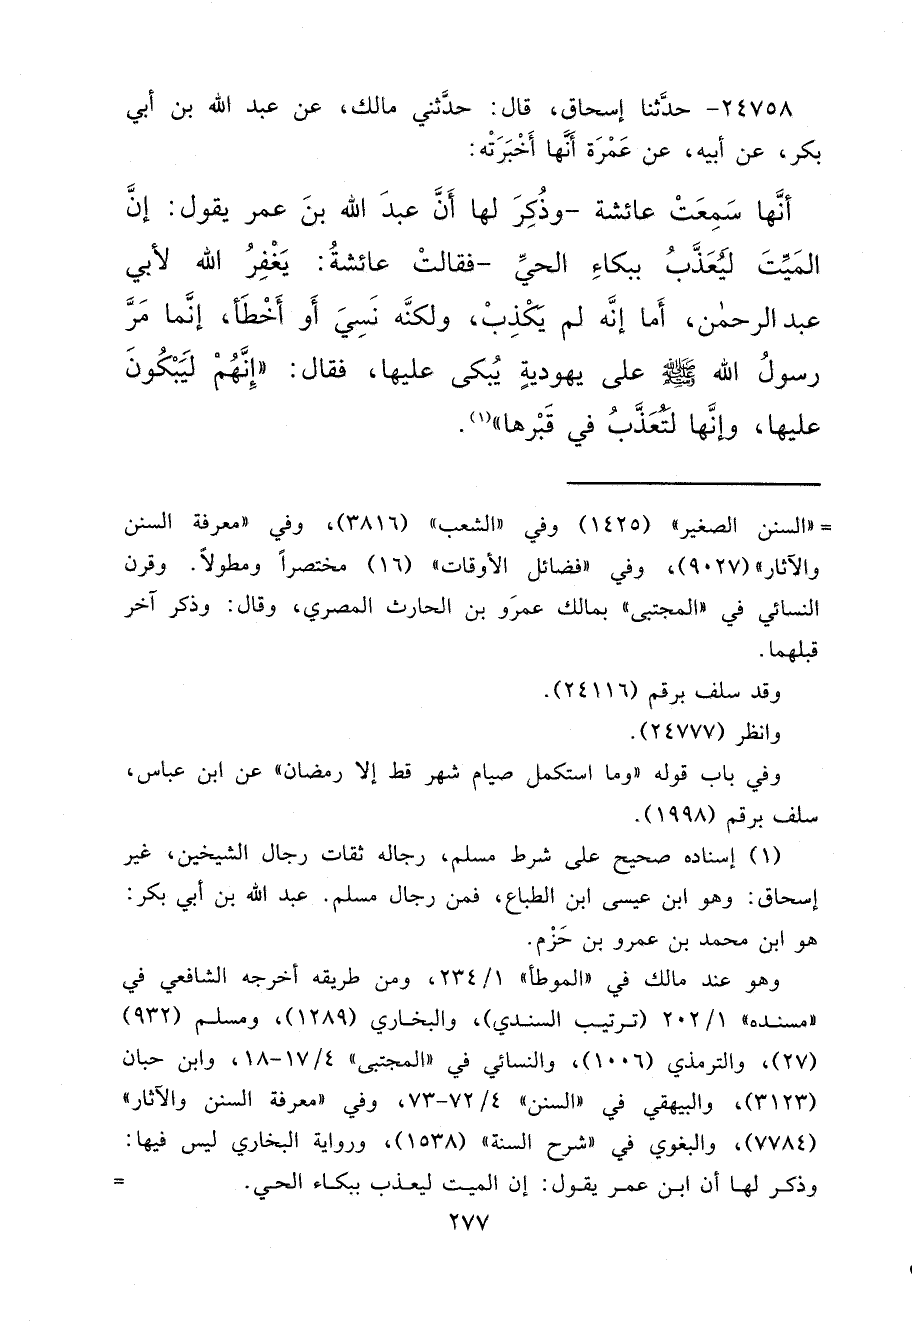 ٢٤٧٥٨- حدَّثنا إسحاق، قال: حدَّثني مالك، عن عبد الله بن أبي
بكر، عن أبيه، عن عَمْرَة أَنَّها أَخْبَرَتْه:
أنَّها سَمِعَتْ عائشة -وذُكِرَ لها أَنَّ عبدَ الله بنَ عمر يقول: إنَّ
المَيِّتَ لَيُعَذَّبُ ببكاءِ الحيِّ -فقالتْ عائشةُ: يَغْفِرُ الله لأبي
عبد الرحمٰن، أَما إنَّه لم يَكْذِبْ، ولكنَّه نَسِيَ أو أَخْطَأَ، إنَّما مَرَّ
رسولُ الله ﷺ على يهوديةٍ يُبكى عليها، فقال: «إِنَّهُمْ لَيَبْكُونَ
عليها، وإنَّها لَتُعَذَّبُ في قَبْرها»(١).
= «السنن الصغير» (١٤٢٥) وفي «الشعب» (٣٨١٦)، وفي «معرفة السنن
والآثار»(٩٠٢٧)، وفي «فضائل الأوقات» (١٦) مختصراً ومطولاً. وقرن
النسائي في «المجتبى» بمالك عمرَو بن الحارث المصري، وقال: وذكر آخر
قبلهما.
وقد سلف برقم (٢٤١١٦).
وانظر (٢٤٧٧٧).
وفي باب قوله «وما استكمل صيام شهر قط إلا رمضان» عن ابن عباس،
سلف برقم (١٩٩٨).
(١) إسناده صحيح على شرط مسلم، رجاله ثقات رجال الشيخين، غير
إسحاق: وهو ابن عيسى ابن الطباع، فمن رجال مسلم. عبد الله بن أبي بكر:
هو ابن محمد بن عمرو بن حَزْم.
وهو عند مالك في «الموطأ» ١/ ٢٣٤، ومن طريقه أخرجه الشافعي في
«مسنده» ١/ ٢٠٢ (ترتيب السندي)، والبخاري (١٢٨٩)، ومسلم (٩٣٢)
(٢٧)، والترمذي (١٠٠٦)، والنسائي في «المجتبى» ٤/ ١٧-١٨، وابن حبان
(٣١٢٣)، والبيهقي في «السنن» ٤/ ٧٢-٧٣، وفي «معرفة السنن والآثار»
(٧٧٨٤)، والبغوي في «شرح السنة» (١٥٣٨)، ورواية البخاري ليس فيها:
وذكر لها أن ابن عمر يقول: إن الميت ليعذب ببكاء الحي. =
٢٧٧